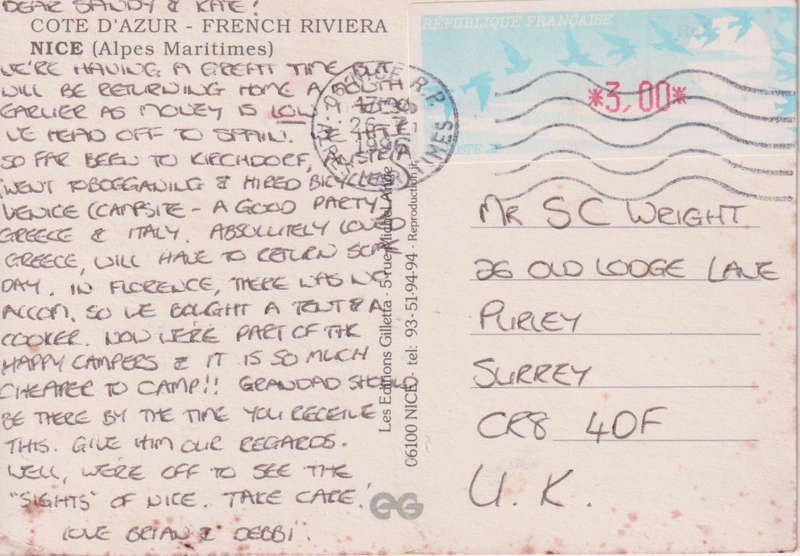 DEAR SANDY & KATE!
COTE D'AZUR - FRENCH RIVIERA
NICE (Alpes Maritimes)
WE'RE HAVING A GREAT TIME BUT
WILL BE RETURNING HOME A MONTH
EARLIER AS MONEY IS LOW. A
WE HEAD OFF TO SPAIN. WE HAVE
SO FAR BEEN TO KIRCHDORF, AUSTRIA
(WENT TOBOGGANING & HIRED BICYCLES)
VENICE (CAMPSITE - A GOOD PARTY)
GREECE & ITALY. ABSOLUTELY LOVED
GREECE, WILL HAVE TO RETURN SOME
DAY. IN FLORENCE, THERE WAS NO
ACCOM. SO WE BOUGHT A TENT & A
COOKER. NOW WE'RE PART OF THE
HAPPY CAMPERS & IT IS SO MUCH
CHEAPER TO CAMP!! GRANDAD SHOULD
BE THERE BY THE TIME YOU RECEIVE
THIS. GIVE HIM OUR REGARDS.
WELL, WE'RE OFF TO SEE THE
"SIGHTS" OF NICE. TAKE CARE!
LOVE BRIAN & DEBBI.
Les Editions Gilletta - 5 rue Michel-Ange
06100 NICE - tel: 93-51-94-94 - Reproduction
EG
RÉPUBLIQUE FRANÇAISE
*3,00*
POSTE
R.P.
26-7
MARITIMES
MR SC WRIGHT
26 OLD LODGE LANE
PURLEY
SURREY
CR8 4DF
U.K.